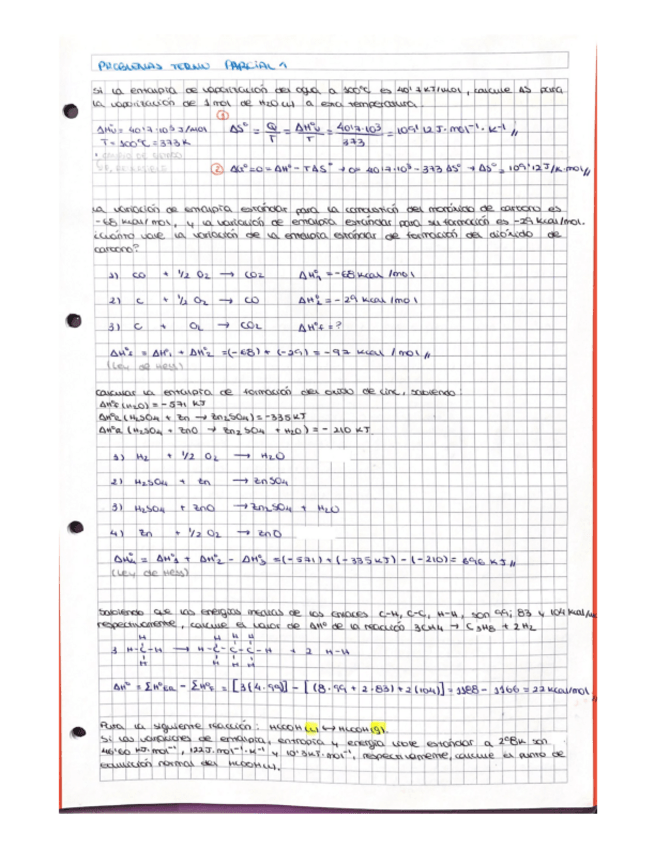 PROBLEMAS TERMO PARCIAL 1
Si la entalpía de vaporización del agua a 100°C es 40'7 kJ/mol, calcule ΔS para
la vaporización de 1 mol de H2O (l) a esa temperatura.
ΔHv° = 40'7·10³ J/mol
T = 100°C = 373 K
① ΔS° = Q/T = ΔHv°/T = 40'7·10³/373 = 109'12 J·mol⁻¹·K⁻¹
② ΔG°=0=ΔH° - TΔS° → 0= 40'7·10³ - 373 ΔS° → ΔS° = 109'12 J/K·mol
La variación de entalpía estándar para la combustión del monóxido de carbono es
-68 kcal/mol, y la variación de entalpía estándar para su formación es -29 kcal/mol.
¿Cuánto vale la variación de la entalpía estándar de formación del dióxido de
carbono?
1) CO + 1/2 O2 → CO2 ΔH°1 = -68 kcal /mol
2) C + 1/2 O2 → CO ΔH°2 = -29 kcal /mol
3) C + O2 → CO2 ΔH°f = ?
ΔH°f = ΔH°1 + ΔH°2 = (-68) + (-29) = -97 kcal /mol
(Ley de Hess)
Calcular la entalpía de formación del óxido de cinc, sabiendo:
ΔH°f (H2O) = -571 kJ
ΔH°R (H2SO4 + Zn → Zn2SO4) = -335 kJ
ΔH°R (H2SO4 + ZnO → Zn2SO4 + H2O) = -210 kJ
1) H2 + 1/2 O2 → H2O
2) H2SO4 + Zn → ZnSO4
3) H2SO4 + ZnO → Zn2SO4 + H2O
4) Zn + 1/2 O2 → ZnO
ΔH°4 = ΔH°1 + ΔH°2 - ΔH°3 = (-571) + (-335 kJ) - (-210) = 696 kJ
(Ley de Hess)
Sabiendo que las energías medias de los enlaces C-H, C-C, H-H, son 99; 83 y 104 kcal/
respectivamente, calcule el valor de ΔH° de la reacción 3CH4 → C3H8 + 2H2
H H H H
3 H-C-H → H-C-C-C-H + 2 H-H
H H H H
ΔH° = [3(4·99)] - [(8·99 + 2·83) + 2(104)] = 1188 - 1166 = 22 kcal/mol
Para la siguiente reacción: HCOOH (l) ↔ HCOOH (g).
Si las variaciones de entalpía, entropía y energía libre estándar a 298K son
46'60 kJ·mol⁻¹, 122 J·mol⁻¹·K⁻¹ y 10'3 kJ·mol⁻¹, respectivamente, calcule el punto de
ebullición normal del HCOOH (l).